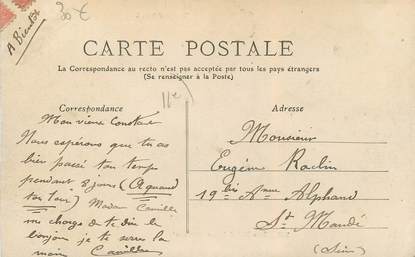 A Bientôt
30 €
CARTE POSTALE
La Correspondance au recto n'est pas acceptée par tous les pays étrangers
(Se renseigner à la Poste)
Correspondance
Adresse
Mon vieux
Nous espérons que tu as
bien passé ton temps
pendant 8 jours (A quand
ton tour) Madame Camille
me charge de te dire le
bonjour je te serre la
main Camille
Monsieur
Eugène
19 bis Alphand
St Mandé
(Seine)